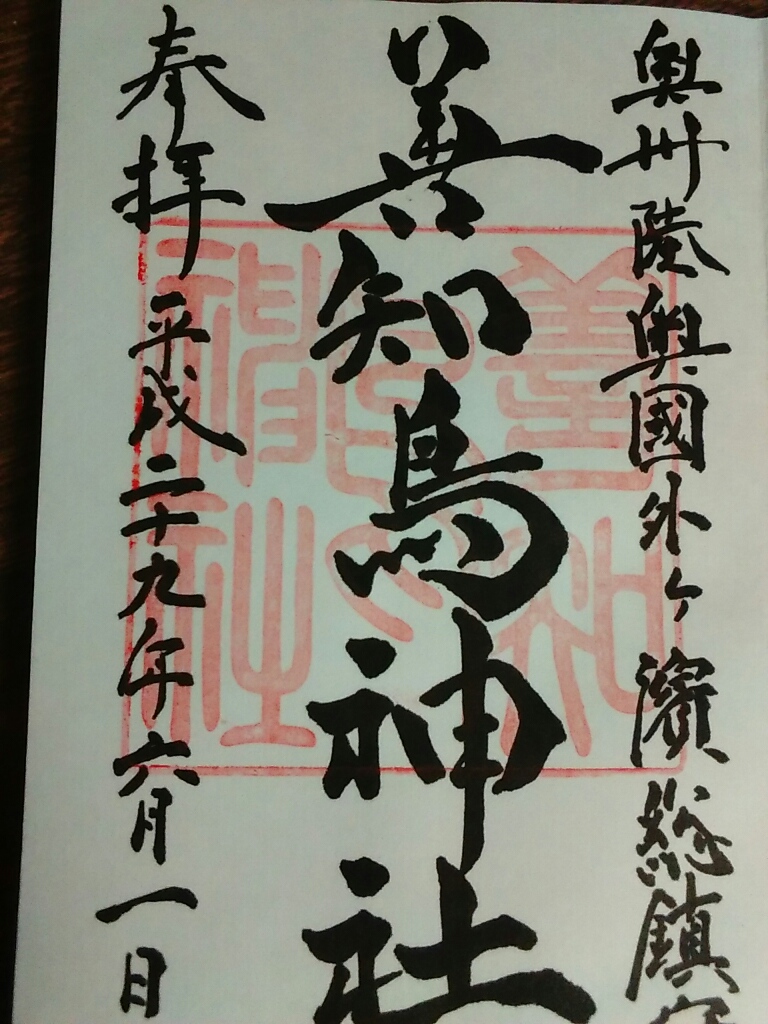 奥州陸奥國外ヶ濱総鎮
善知鳥神社
奉拝 平成二十九年六月一日